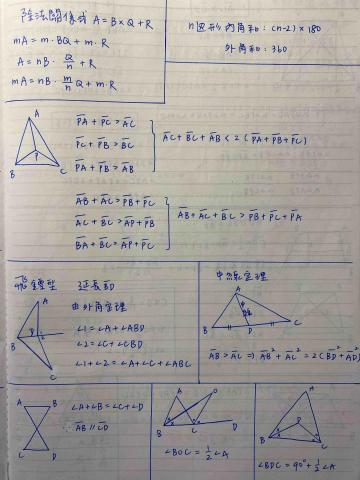 除法關係式 A=B×Q+R
mA = m·BQ + m·R
A = nB · Q/n + R
mA = nB · m/n Q + m·R
n邊形內角和: (n-2)×180
外角和: 360
A
P
B C
P̅A̅ + P̅C̅ > A̅C̅
P̅C̅ + P̅B̅ > B̅C̅
P̅A̅ + P̅B̅ > A̅B̅
A̅C̅ + B̅C̅ + A̅B̅ < 2 ( P̅A̅ + P̅B̅ + P̅C̅ )
A̅B̅ + A̅C̅ > P̅B̅ + P̅C̅
A̅C̅ + B̅C̅ > A̅P̅ + P̅B̅
B̅A̅ + B̅C̅ > A̅P̅ + P̅C̅
A̅B̅ + A̅C̅ + B̅C̅ > P̅B̅ + P̅C̅ + P̅A̅
飛鏢型 延長BD
由外角定理
A
B
C
∠1 = ∠A + ∠ABD
∠2 = ∠C + ∠CBD
∠1 + ∠2 = ∠A + ∠C + ∠ABC
中線定理
A
B D C
A̅B̅ > A̅C̅ ⇒ A̅B̅² + A̅C̅² = 2( B̅D̅² + A̅D̅² )
A B
C D
∠A + ∠B = ∠C + ∠D
A̅B̅ // C̅D̅
A O
B C D
∠BOC = 1/2 ∠A
A
D
B C
∠BDC = 90° + 1/2 ∠A